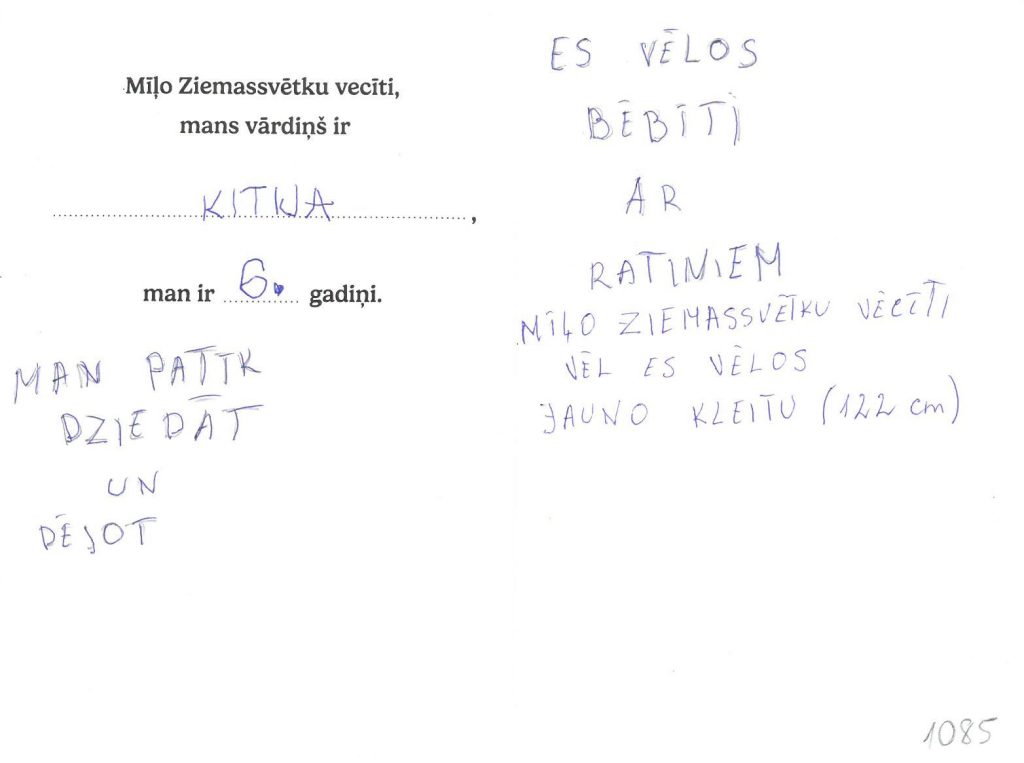 Mīļo Ziemassvētku vecīti,
mans vārdiņš ir
KITWA,
man ir 6. gadiņi.
MAN PATĪK
DZIEDĀT
UN
DĒJOT
ES VĒLOS
BĒBĪTI
AR
RATIŅIEM
MĪĻO ZIEMASSVĒTKU VĒCĪTI
VĒL ES VĒLOS
JAUNO KLEITU (122 cm)
1085